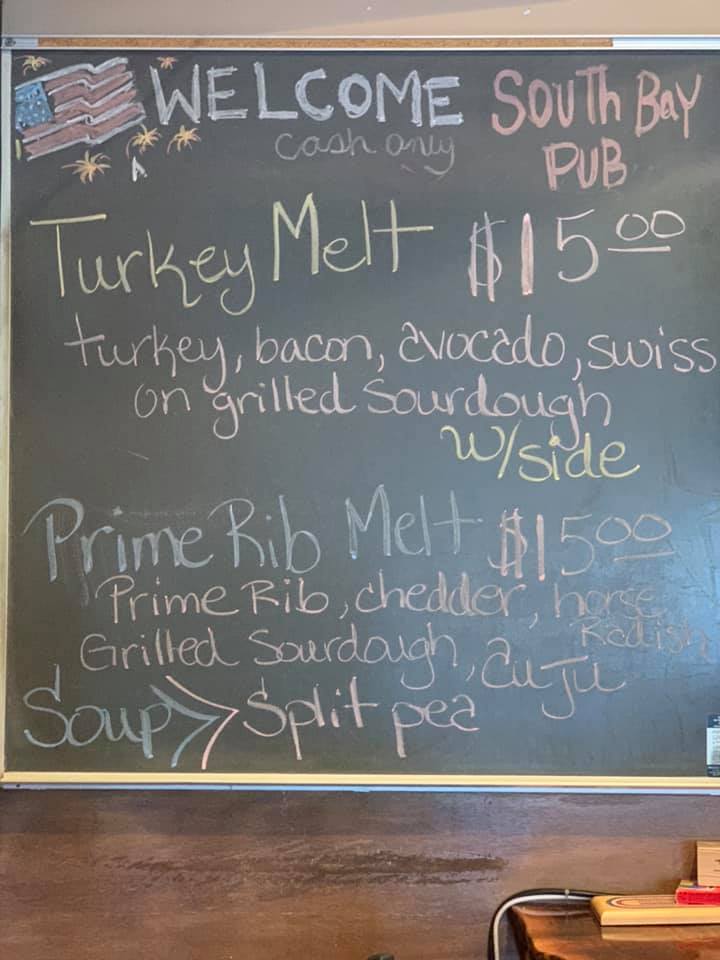 WELCOME SOUTH BAY
cash only PUB
Turkey Melt $15.00
turkey, bacon, avocado, swiss
on grilled Sourdough
w/side
Prime Rib Melt $15.00
Prime Rib, chedder, horse
Radish
Grilled Sourdough, au Ju
Soup > Split pea